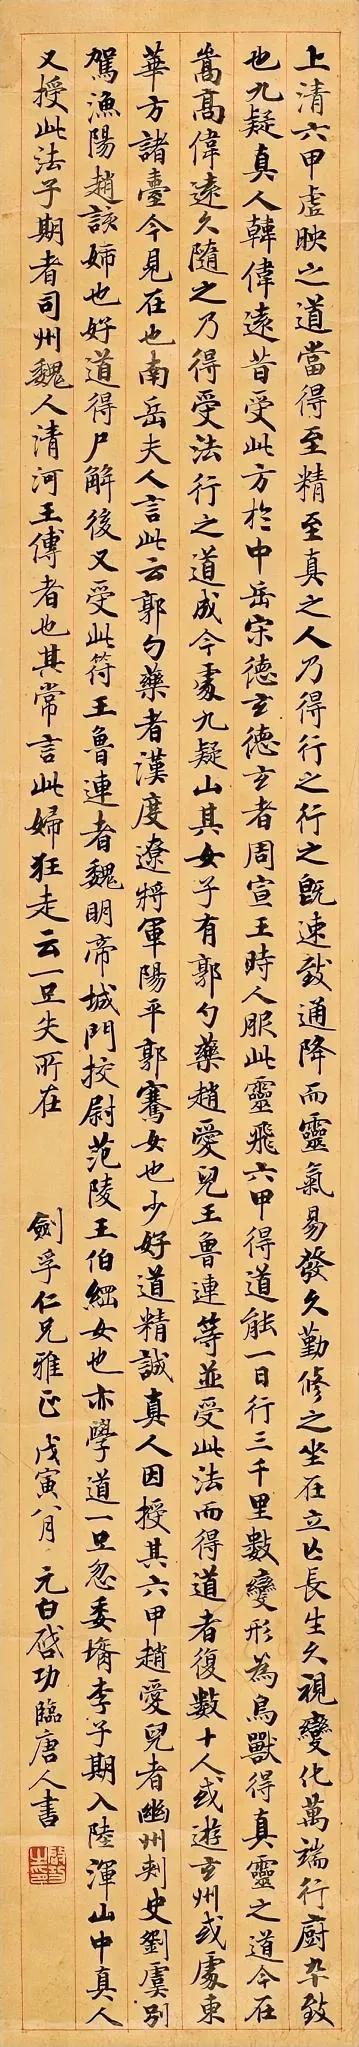 上清六甲虚映之道當得至精至真之人乃得行之行之既速致通降而靈氣易發久勤修之坐在立亡長生久視變化萬端行廚卒致
也九疑真人韓偉遠昔受此方於中岳宋德玄德玄者周宣王時人服此靈飛六甲得道能一日行三千里數變形為鳥獸得真靈之道今在
嵩高偉遠久隨之乃得受法行之道成今處九疑山其女子有郭勺藥趙愛兒王魯連等並受此法而得道者復數十人或遊玄州或處東
華方諸臺今見在也南岳夫人言此云郭勺藥者漢度遼將軍陽平郭騫女也少好道精誠真人因授其六甲趙愛兒者幽州刺史劉虞別
駕漁陽趙該姊也好道得尸解後又受此符王魯連者魏明帝城門挍尉范陵王伯綱女也亦學道一旦忽委壻李子期入陸渾山中真人
又授此法子期者司州魏人清河王傳者也其常言此婦狂走云一旦失所在
劍孚仁兄雅正 戊寅八月 元白啓功臨唐人書